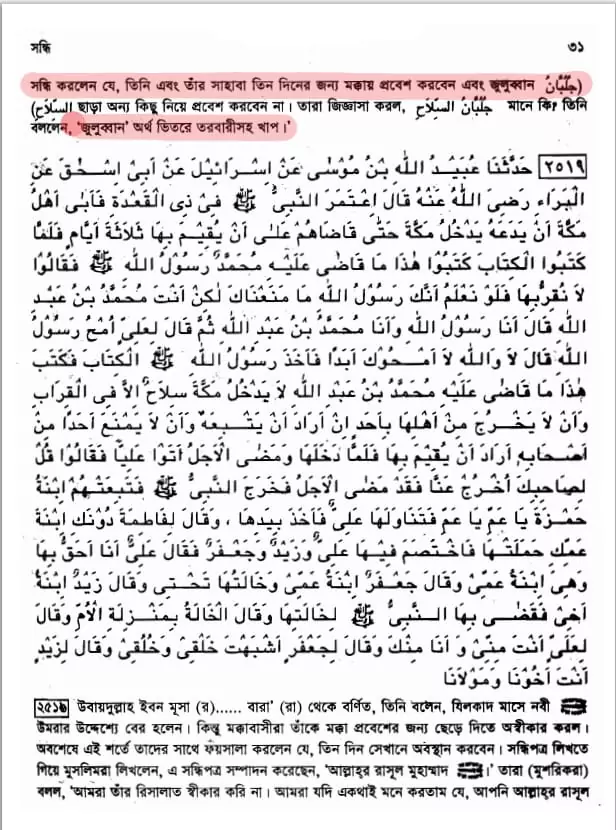 সন্ধি
৩১
সন্ধি করলেন যে, তিনি এবং তাঁর সাহাবা তিন দিনের জন্য মক্কায় প্রবেশ করবেন এবং জুলুব্বান جُلُبَّانُ)
(السِّلَاحِ ছাড়া অন্য কিছু নিয়ে প্রবেশ করবেন না। তারা জিজ্ঞাসা করল, جُلُبَّانُ السِّلَاحِ মানে কি? তিনি
বললেন, ‘জুলুব্বান’ অর্থ ভিতরে তরবারীসহ খাপ।’
٢٥١٩ حَدَّثَنَا عُبَيْدُ اللهِ بْنُ مُوْسٰى عَنْ اِسْرَائِيْلَ عَنْ اَبِىْ اِسْحٰقَ عَنِ
الْبَرَاءِ رَضِىَ اللهُ عَنْهُ قَالَ اِعْتَمَرَ النَّبِىُّ ﷺ فِىْ ذِى الْقَعْدَةِ فَاَبٰى اَهْلُ
مَكَّةَ اَنْ يَدَعُهُ يَدْخُلُ مَكَّةَ حَتّٰى قَاضَاهُمْ عَلٰى اَنْ يُقِيْمَ بِهَا ثَلاَثَةَ اَيَّامٍ فَلَمَّا
كَتَبُوا الْكِتَابَ كَتَبُوْا هٰذَا مَا قَاضٰى عَلَيْهِ مُحَمَّدٌ رَسُوْلُ اللهِ ﷺ فَقَالُوْا
لاَ نُقِرُّبِهَا فَلَوْ نَعْلَمُ اَنَّكَ رَسُوْلُ اللهِ مَا مَنَعْنَاكَ لٰكِنْ اَنْتَ مُحَمَّدُ بْنُ عَبْدِ
اللهِ قَالَ اَنَا رَسُوْلُ اللهِ وَاَنَا مُحَمَّدُ بْنُ عَبْدِ اللهِ ثُمَّ قَالَ لِعَلِىٍّ اُمْحُ رَسُوْلُ
اللهِ قَالَ لاَ وَاللهِ لاَ اَمْحُوْكَ اَبَدًا فَاَخَذَ رَسُوْلُ اللهِ ﷺ الْكِتَابَ فَكَتَبَ
هٰذَا مَا قَاضٰى عَلَيْهِ مُحَمَّدُ بْنُ عَبْدِ اللهِ لاَ يَدْخُلُ مَكَّةَ سِلاَحٌ اِلاَّ فِى الْقِرَابِ
وَاَنْ لاَ يَخْرُجَ مِنْ اَهْلِهَا بِاَحَدٍ اِنْ اَرَادَ اَنْ يَتَّبِعَهُ وَاَنْ لاَ يَمْنَعَ اَحَدًا مِنْ
اَصْحَابِهِ اَرَادَ اَنْ يُقِيْمَ بِهَا فَلَمَّا دَخَلَهَا وَمَضَى الْاَجَلُ اَتَوْا عَلِيًّا فَقَالُوْا قُلْ
لِصَاحِبِكَ اُخْرُجْ عَنَّا فَقَدْ مَضَى الْاَجَلُ فَخَرَجَ النَّبِىُّ ﷺ فَتَبِعَتْهُمُ ابْنَةُ
حَمْزَةَ يَا عَمِّ يَا عَمِّ فَتَنَاوَلَهَا عَلِىٌّ فَاَخَذَ بِيَدِهَا ، وَقَالَ لِفَاطِمَةَ دُوْنَكِ ابْنَةَ
عَمِّكِ حَمَلَتْهَا فَاخْتَصَمَ فِيْهَا عَلِىٌّ وَزَيْدٌ وَجَعْفَرٌ فَقَالَ عَلِىٌّ اَنَا اَحَقُّ بِهَا
وَهِىَ اِبْنَةُ عَمِّىْ وَقَالَ جَعْفَرٌ اِبْنَةُ عَمِّىْ وَخَالَتُهَا تَحْتِىْ وَقَالَ زَيْدٌ اِبْنَةُ
اَخِىْ فَقَضٰى بِهَا النَّبِىُّ ﷺ لِخَالَتِهَا وَقَالَ الْخَالَةُ بِمَنْزِلَةِ الْاُمِّ وَقَالَ
لِعَلِىٍّ اَنْتَ مِنِّىْ وَ اَنَا مِنْكَ وَقَالَ لِجَعْفَرٍ اَشْبَهْتَ خَلْقِىْ وَخُلُقِىْ وَقَالَ لِزَيْدٍ
اَنْتَ اَخُوْنَا وَمَوْلاَنَا
২৫১৯ উবায়দুল্লাহ ইবন মূসা (র)...... বারা’ (রা) থেকে বর্ণিত, তিনি বলেন, যিলকাদ মাসে নবী ﷺ
উমরার উদ্দেশ্যে বের হলেন। কিন্তু মক্কাবাসীরা তাঁকে মক্কা প্রবেশের জন্য ছেড়ে দিতে অস্বীকার করল।
অবশেষে এই শর্তে তাদের সাথে ফয়সালা করলেন যে, তিন দিন সেখানে অবস্থান করবেন। সন্ধিপত্র লিখতে
গিয়ে মুসলিমরা লিখলেন, এ সন্ধিপত্র সম্পাদন করেছেন, ‘আল্লাহর রাসূল মুহাম্মাদ ﷺ।’ তারা (মুশরিকরা)
বলল, ‘আমরা তাঁর রিসালাত স্বীকার করি না। আমরা যদি একথাই মনে করতাম যে, আপনি আল্লাহর রাসূল